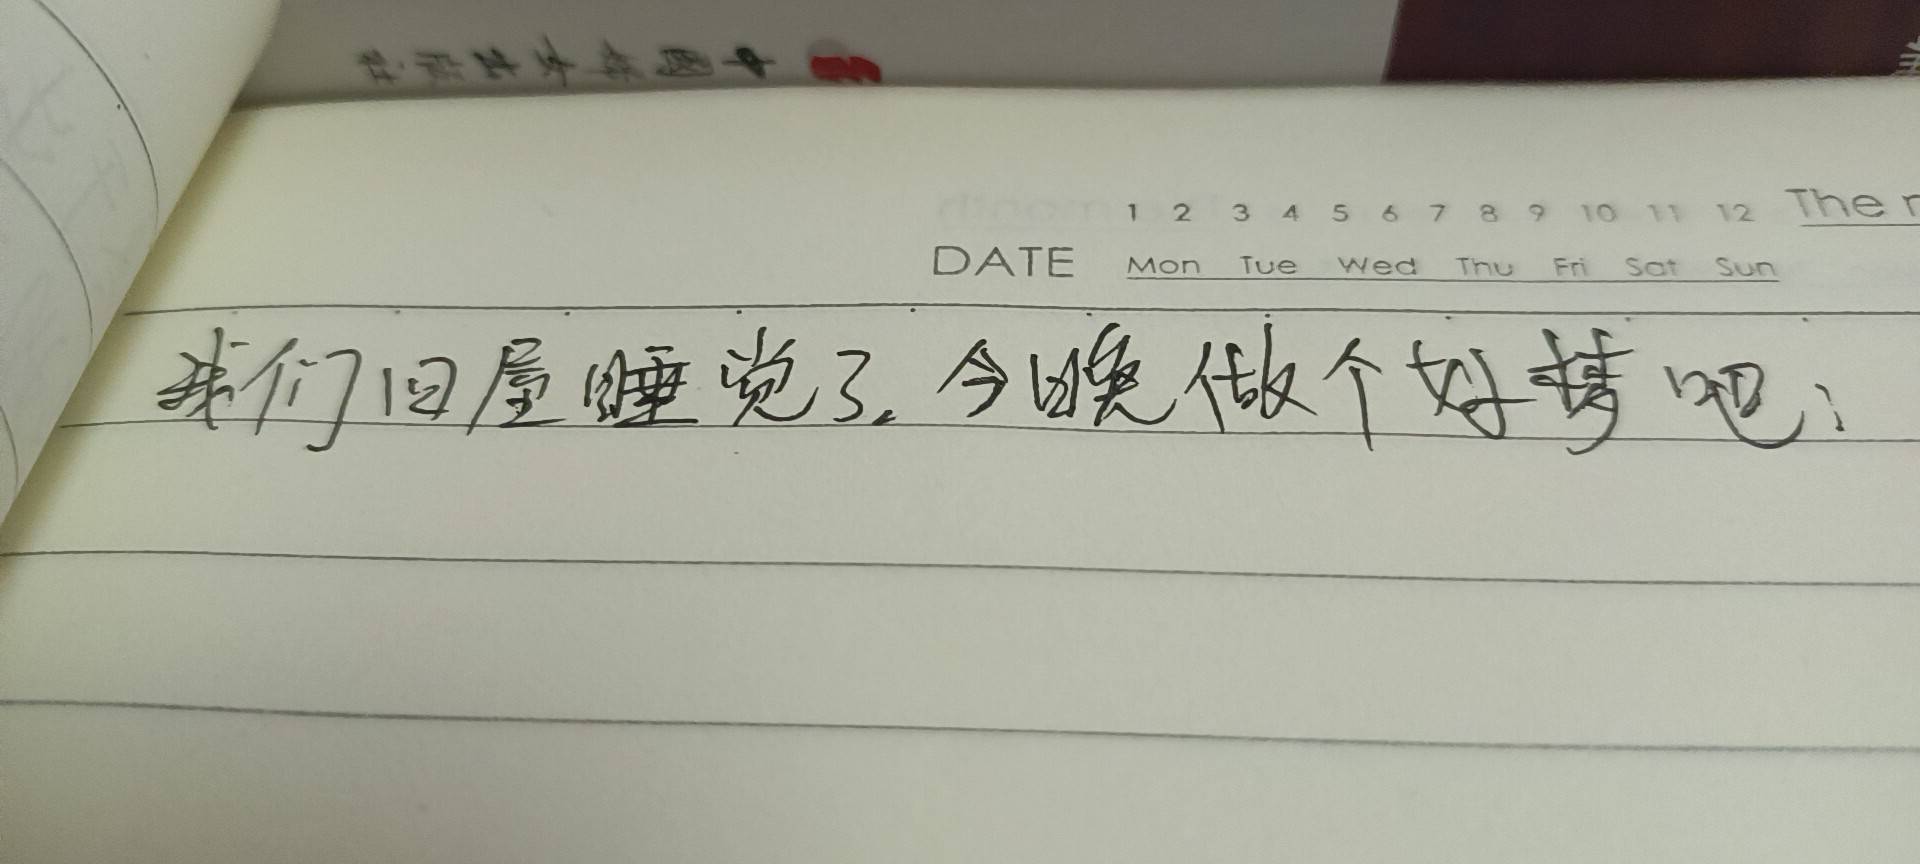 1 2 3 4 5 6 7 8 9 10 11 12 The
DATE Mon Tue Wed Thu Fri Sat Sun
我们回屋睡觉了,今晚做个好梦吧!